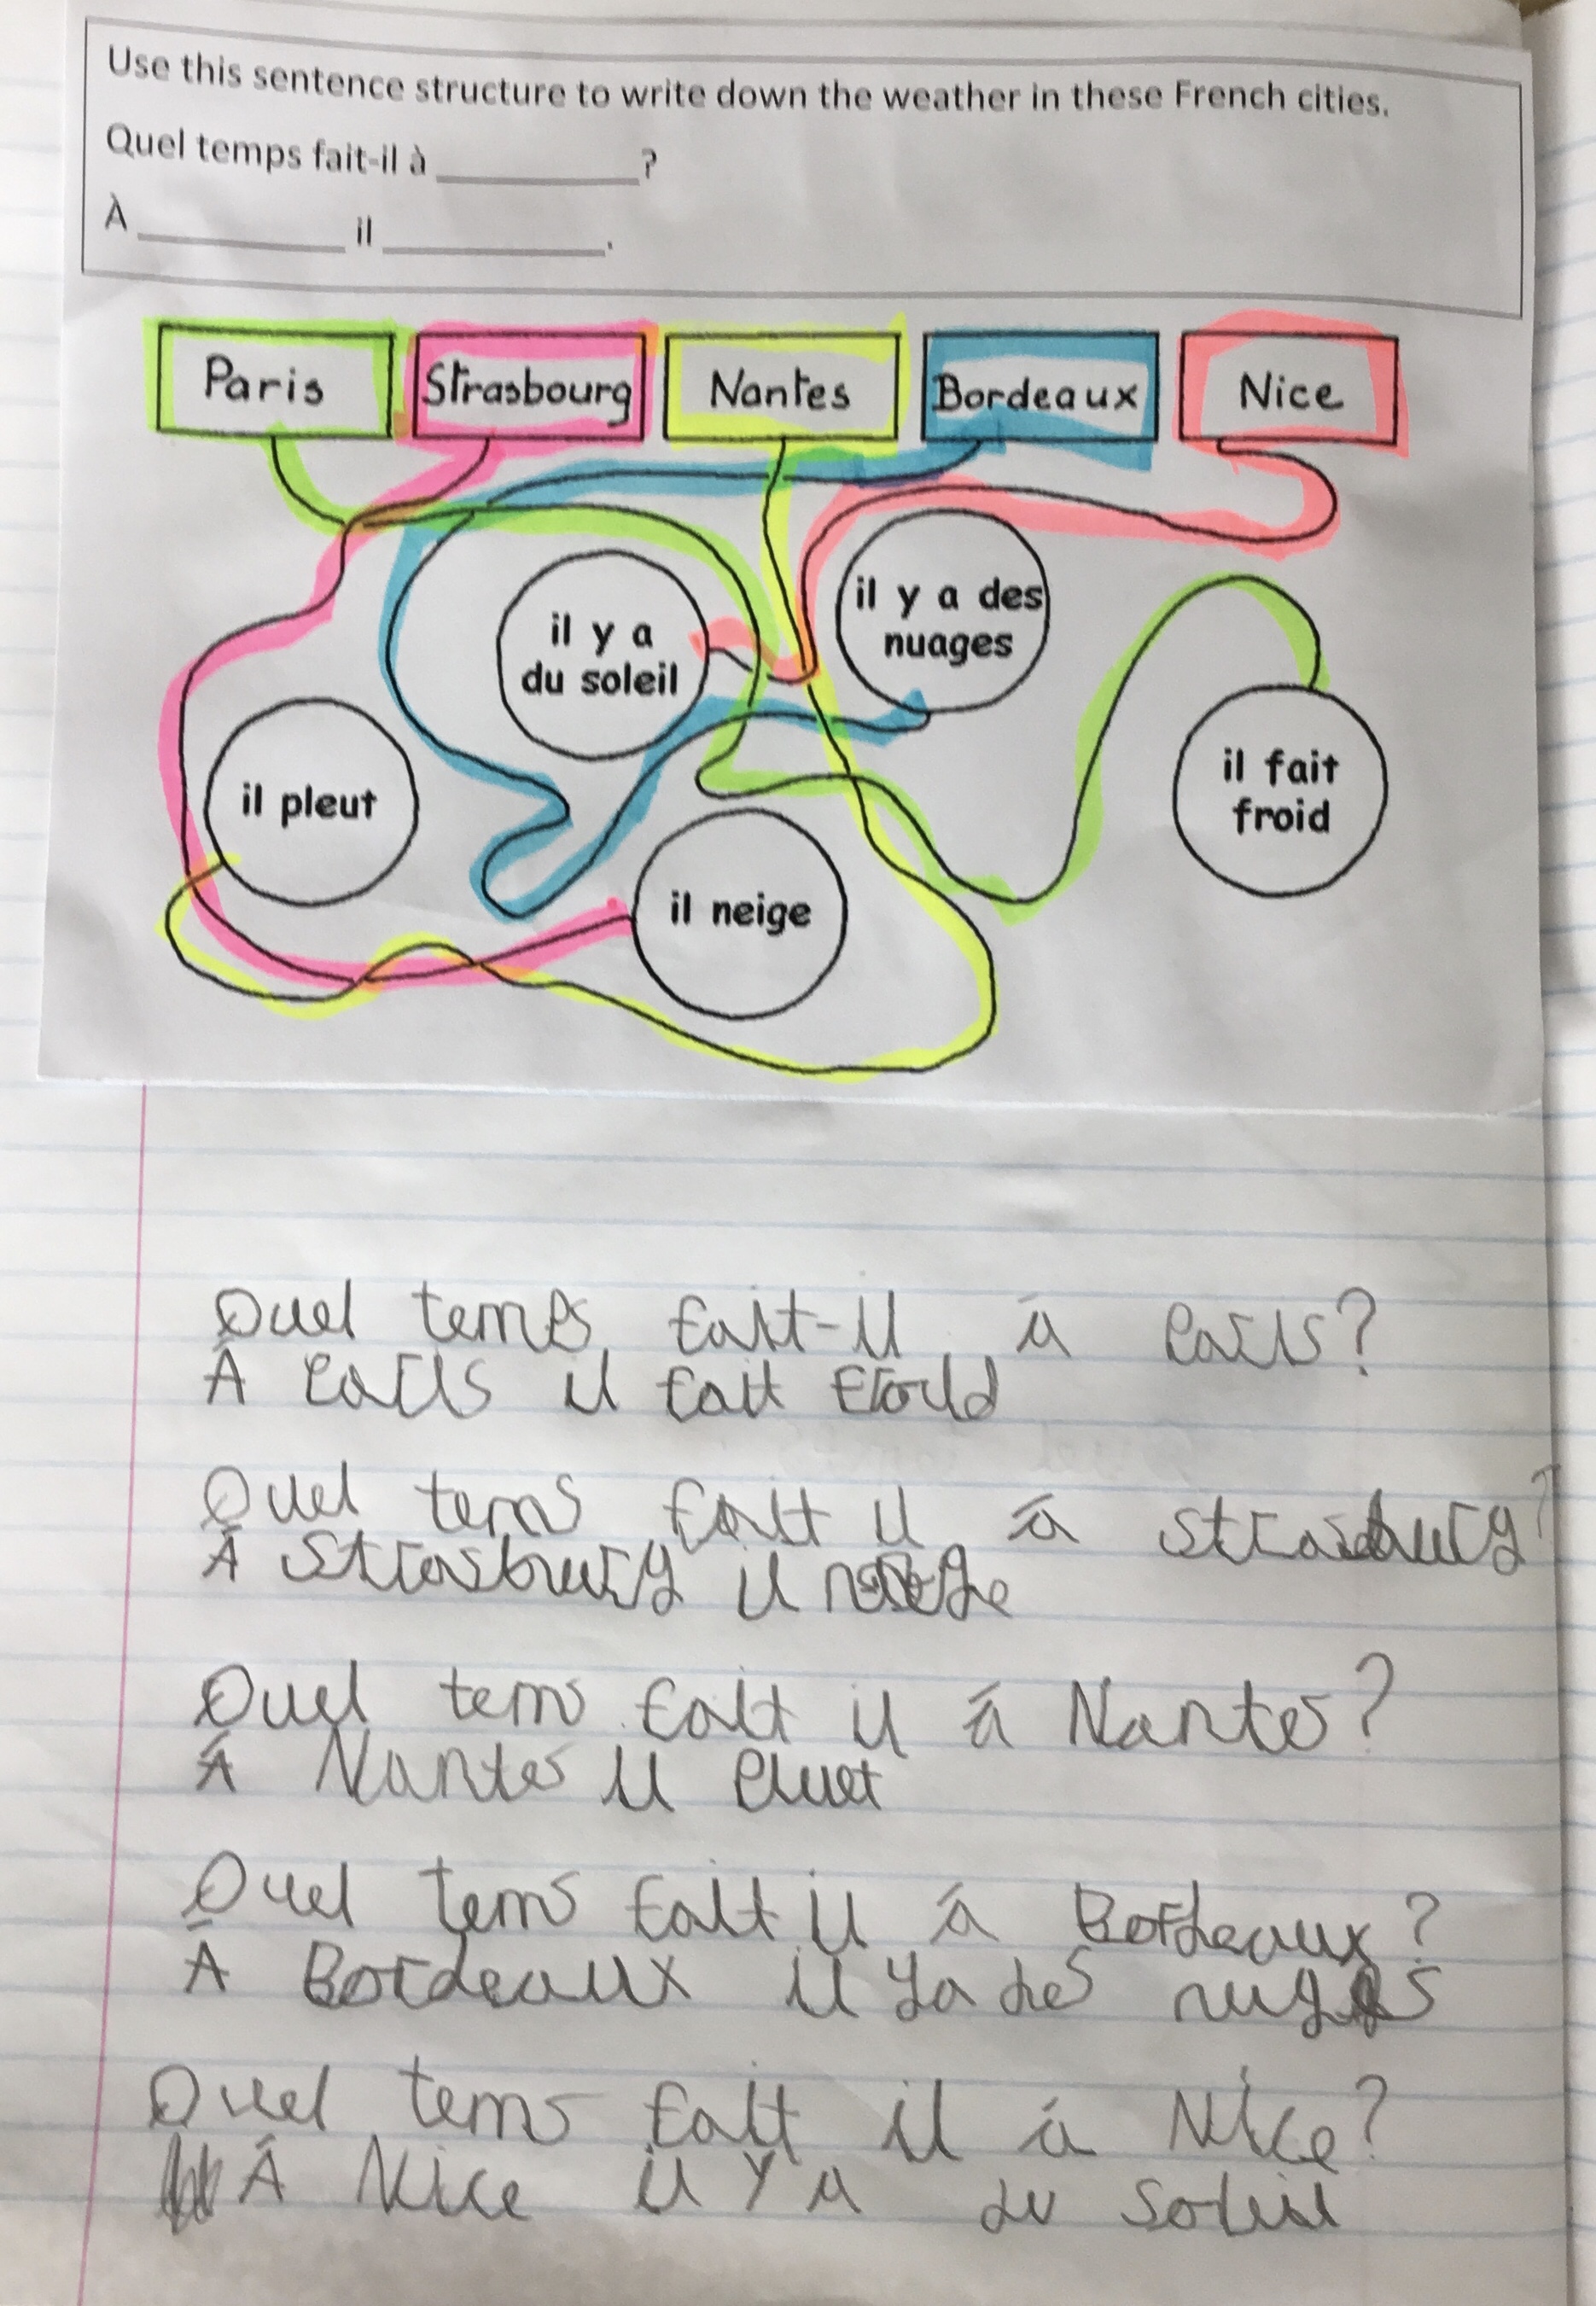 Use this sentence structure to write down the weather in these French cities.
Quel temps fait-il à __________ ?
À __________ il __________.
Paris
Strasbourg
Nantes
Bordeaux
Nice
il y a
du soleil
il y a des
nuages
il pleut
il neige
il fait
froid
Quel temps fait-il à Paris?
Á Paris il fait froid
Quel tems fait il à strasburg?
Á Strasburg il neige
Quel tems fait il á Nantes?
Á Nantes il pluet
Quel tems fait il á Bordeaux?
Á Bordeaux il y a des nuges
Quel tems fait il á Nice?
Á Nice il y a du soleil